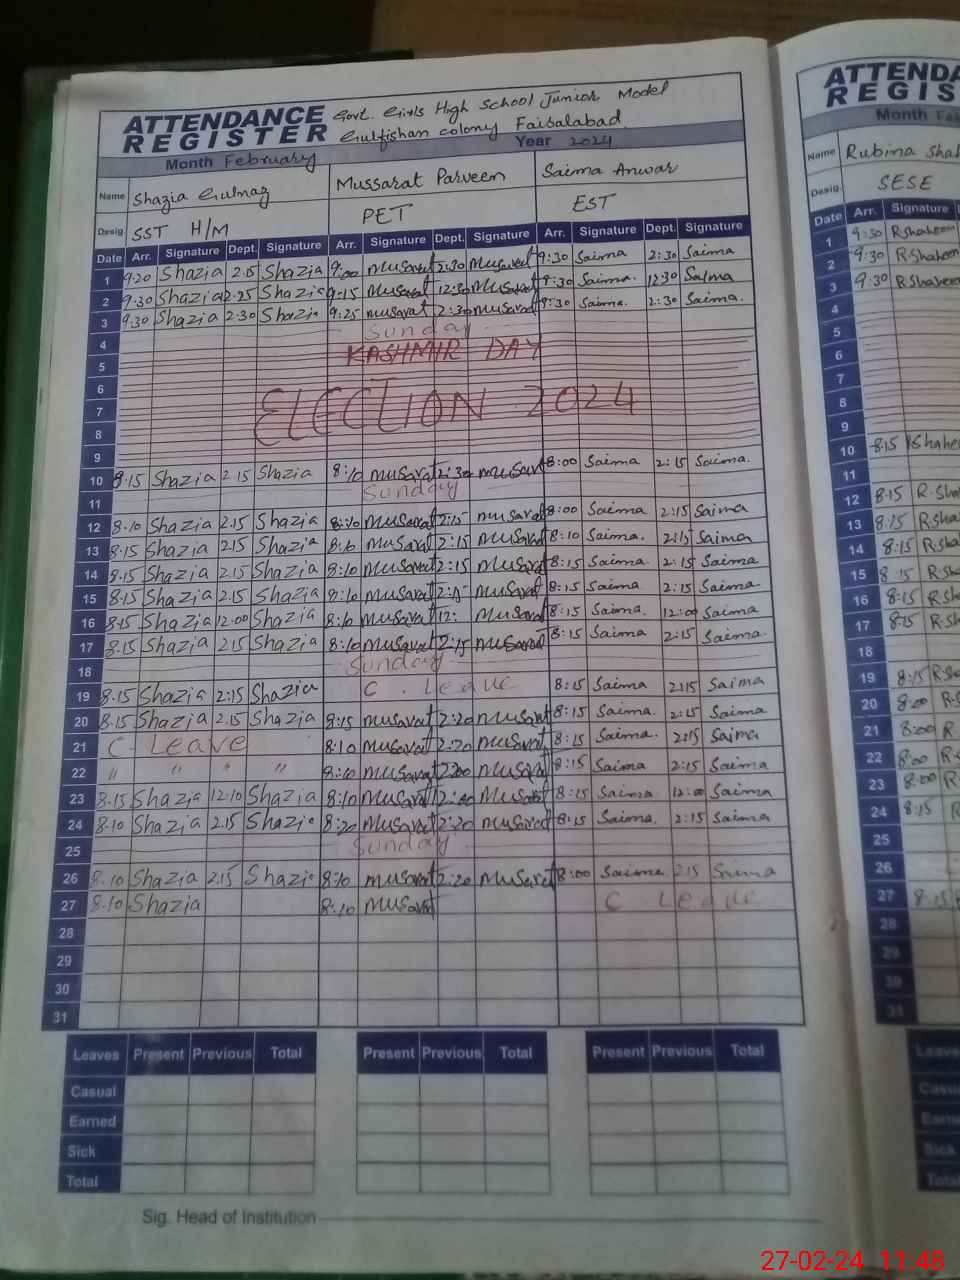 ATTENDANCE REGISTER Govt. Girls High School Junior Model
Gulfishan colony Faisalabad.
Month February Year 2024
Name Shazia Gulnaz Mussarat Parveen Saima Anwar
Desig. SST H/M PET EST
Date Arr. Signature Dept. Signature Arr. Signature Dept. Signature Arr. Signature Dept. Signature
1 9:20 Shazia 2:15 Shazia 9:00 Musarat 2:30 Musarat 9:30 Saima 2:30 Saima
2 9:30 Shazia 2:25 Shazia 9:15 Musarat 12:30 Musarat 9:30 Saima. 12:30 Saima
3 9.30 Shazia 2.30 Shazia 9:25 Musarat 2:30 Musarat 9:30 Saima. 2:30 Saima.
4 Sunday
5 KASHMIR DAY
6
7 ELECTION 2024
8
9
10 8.15 Shazia 2.15 Shazia 8:10 Musarat 2:30 Musarat 8:00 Saima 2:15 Saima.
11 Sunday
12 8.10 Shazia 2.15 Shazia 8:10 Musarat 2:15 Musarat 8:00 Saima 2:15 Saima
13 8.15 Shazia 2.15 Shazia 8:10 Musarat 2:15 Musarat 8:10 Saima. 2:15 Saima
14 8.15 Shazia 2.15 Shazia 8:10 Musarat 2:15 Musarat 8:15 Saima. 2:15 Saima
15 8.15 Shazia 2.15 Shazia 8:10 Musarat 2:15 Musarat 8:15 Saima 2:15 Saima
16 8.15 Shazia 12.00 Shazia 8:10 Musarat 12: Musarat 8:15 Saima. 12:00 Saima
17 8.15 Shazia 2.15 Shazia 8:10 Musarat 2:15 Musarat 8:15 Saima 2:15 Saima.
18 Sunday
19 8.15 Shazia 2:15 Shazia C. Leave 8:15 Saima 2:15 Saima
20 8.15 Shazia 2.15 Shazia 8:15 Musarat 2:20 Musarat 8:15 Saima. 2:15 Saima
21 C. Leave 8:10 Musarat 2:20 Musarat 8:15 Saima. 2:15 Saima
22 " " " " 8:10 Musarat 2:20 Musarat 8:15 Saima 2:15 Saima
23 8.15 Shazia 12:10 Shazia 8:10 Musarat 12:00 Musarat 8:15 Saima 12:00 Saima
24 8.10 Shazia 2.15 Shazia 8:20 Musarat 2:20 Musarat 8:15 Saima. 2:15 Saima
25 Sunday
26 8.10 Shazia 2.15 Shazia 8:10 Musarat 2:20 Musarat 8:00 Saima 2:15 Saima
27 8.10 Shazia 8.10 Musarat C Leave
28
29
30
31
Leaves Present Previous Total Present Previous Total Present Previous Total
Casual
Earned
Sick
Total
Sig. Head of Institution
ATTENDA
REGIS
Month Feb
Name Rubina Shah
Desig. SESE
Date Arr. Signature
1 9:30 R.Shaheen
2 9:30 R.Shaheen
3 9:30 R.Shaheen
4
5
6
7
8
9
10 8.15 R.Shaheen
11
12 8:15 R.Sha
13 8:15 R.Sha
14 8:15 R.Sha
15 8:15 R.Sh
16 8:15 R.Sh
17 8:15 R.Sh
18
19 8:15 R.Sh
20 8:00 R.S
21 8:00 R.
22 8:00 R.
23 8:00 R
24 8:15 R
25
26
27 8.15 R
28
29
30
31
Leave
Casu
Earne
Sick
Total
27-02-24 11:48